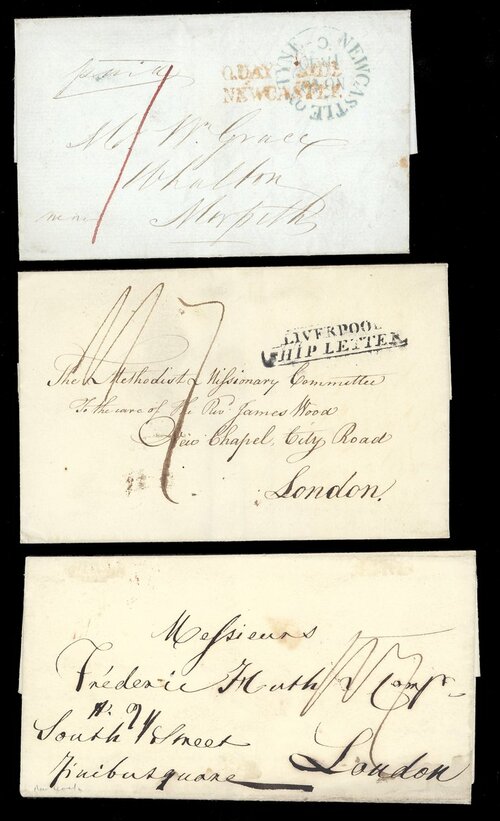 Q.DAY SIDE
NEWCASTLE
NEWCASTLE ON TYNE
Mr. Wm. Grace
Whalton
Morpeth
LIVERPOOL
SHIP LETTER
The Methodist Missionary Committee
To the care of The Revd. James Wood
New Chapel, City Road
London.
Messieurs
Fréderic Huth & Comp.
No. 24
South Street
Finibusquare
London